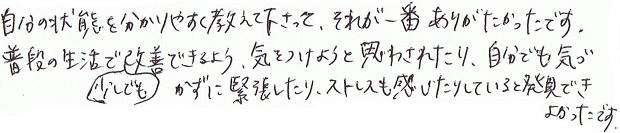 自分の状態を分かりやすく教えて下さって、それが一番ありがたかったです。
普段の生活で改善できるよう、気をつけようと思わされたり、自分でも気づ
少しでも かずに緊張したり、ストレスも感じたりしていると発見でき
よかったです。